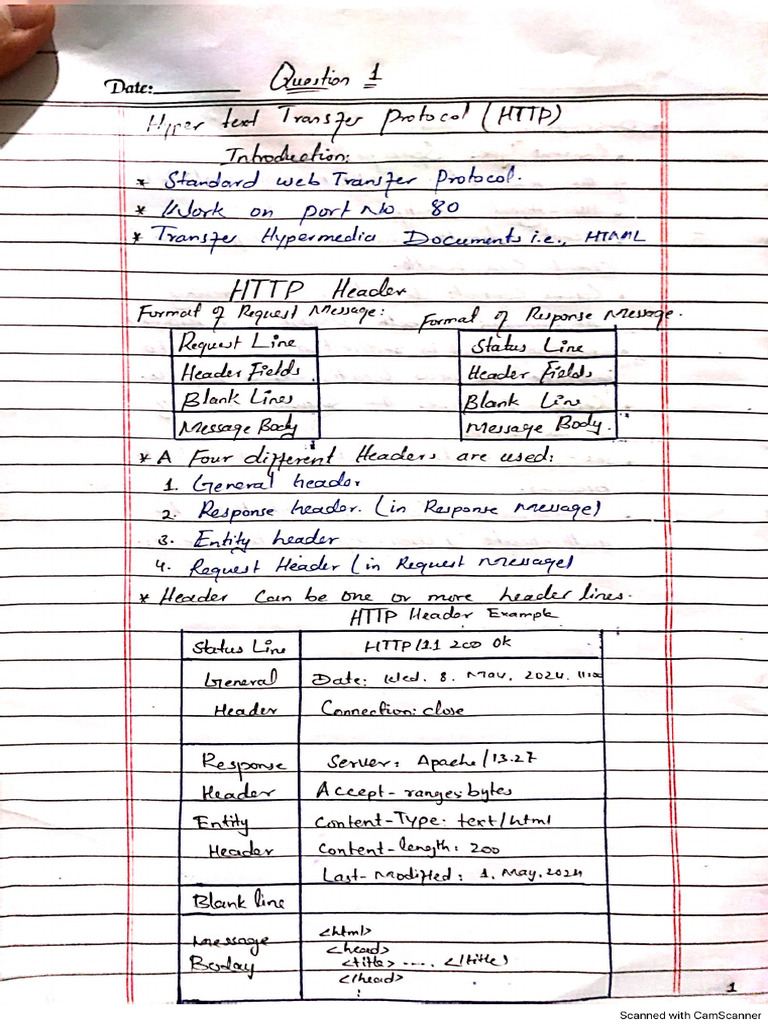 Date:
Question 1
Hyper text Transfer Protocol (HTTP)
Introduction:
* Standard web Transfer Protocol.
* Work on port No 80
* Transfer Hypermedia Documents i.e., HTML
HTTP Header
Format of Request Message:
Format of Response Message.
Request Line
Header Fields
Blank Lines
Message Body
Status Line
Header Fields
Blank Line
Message Body.
* A Four different Headers are used:
1. General header
2. Response header. (in Response Message)
3. Entity header
4. Request Header (in Request Message)
* Header Can be one or more header lines.
HTTP Header Example
Status Line HTTP/1.1 200 Ok
General Date: Wed. 8. May. 2024.
Header Connection: close
Response Server: Apache/13.27
Header Accept-ranges bytes
Entity Content-Type: text/html
Header Content-length: 200
Last-Modified: 1. May. 2024
Blank line
Message <html>
<head>
Boday <title> ..... </title>
</head>
:
1
Scanned with CamScanner